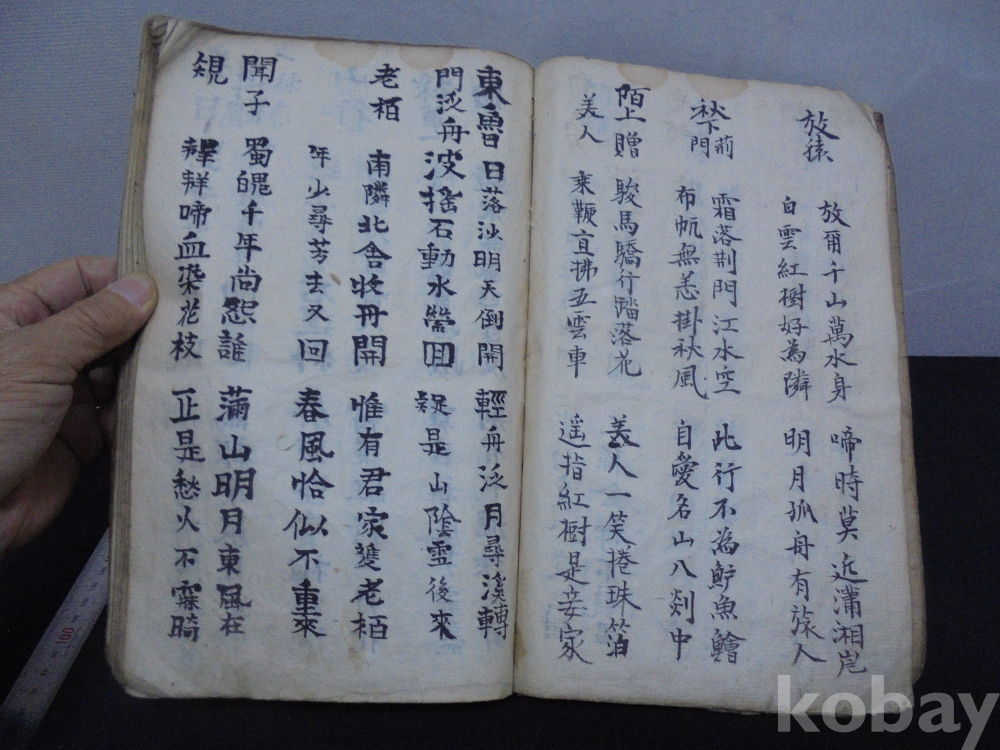 放猿
放爾千山萬水身 啼時莫近瀟湘岸
白雲紅樹好為隣 明月孤舟有旅人
秋下荊門
霜落荊門江水空 此行不為鱸魚鱠
布帆無恙掛秋風 自愛名山入剡中
陌上贈 駿馬驕行踏落花 美人一笑捲珠箔
美人 乘鞭直拂五雲車 遥指紅樹是妾家
東魯 日落沙明天倒開 輕舟泛月尋溪轉
門泛舟 波搖石動水縈回 疑是山陰雪後來
老栢 南隣北舍牧丹開 惟有君家雙老栢
年少尋芳去又回 春風恰似不重來
聞子 蜀魄千年尚怨誰 滿山明月東風在
規 聲聲啼血染花枝 正是愁人不寐時
kobay